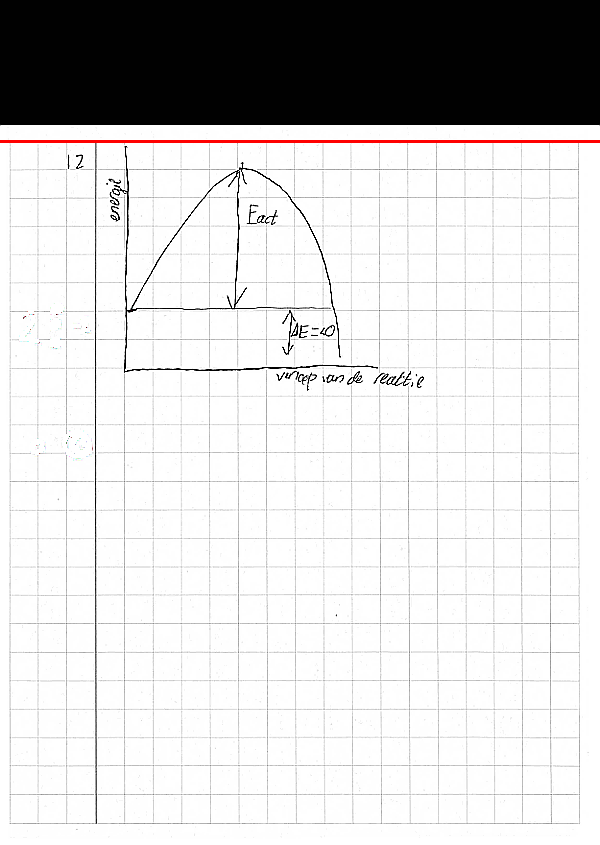 12
energie
Eact
ΔE=<0
verloop van de reactie